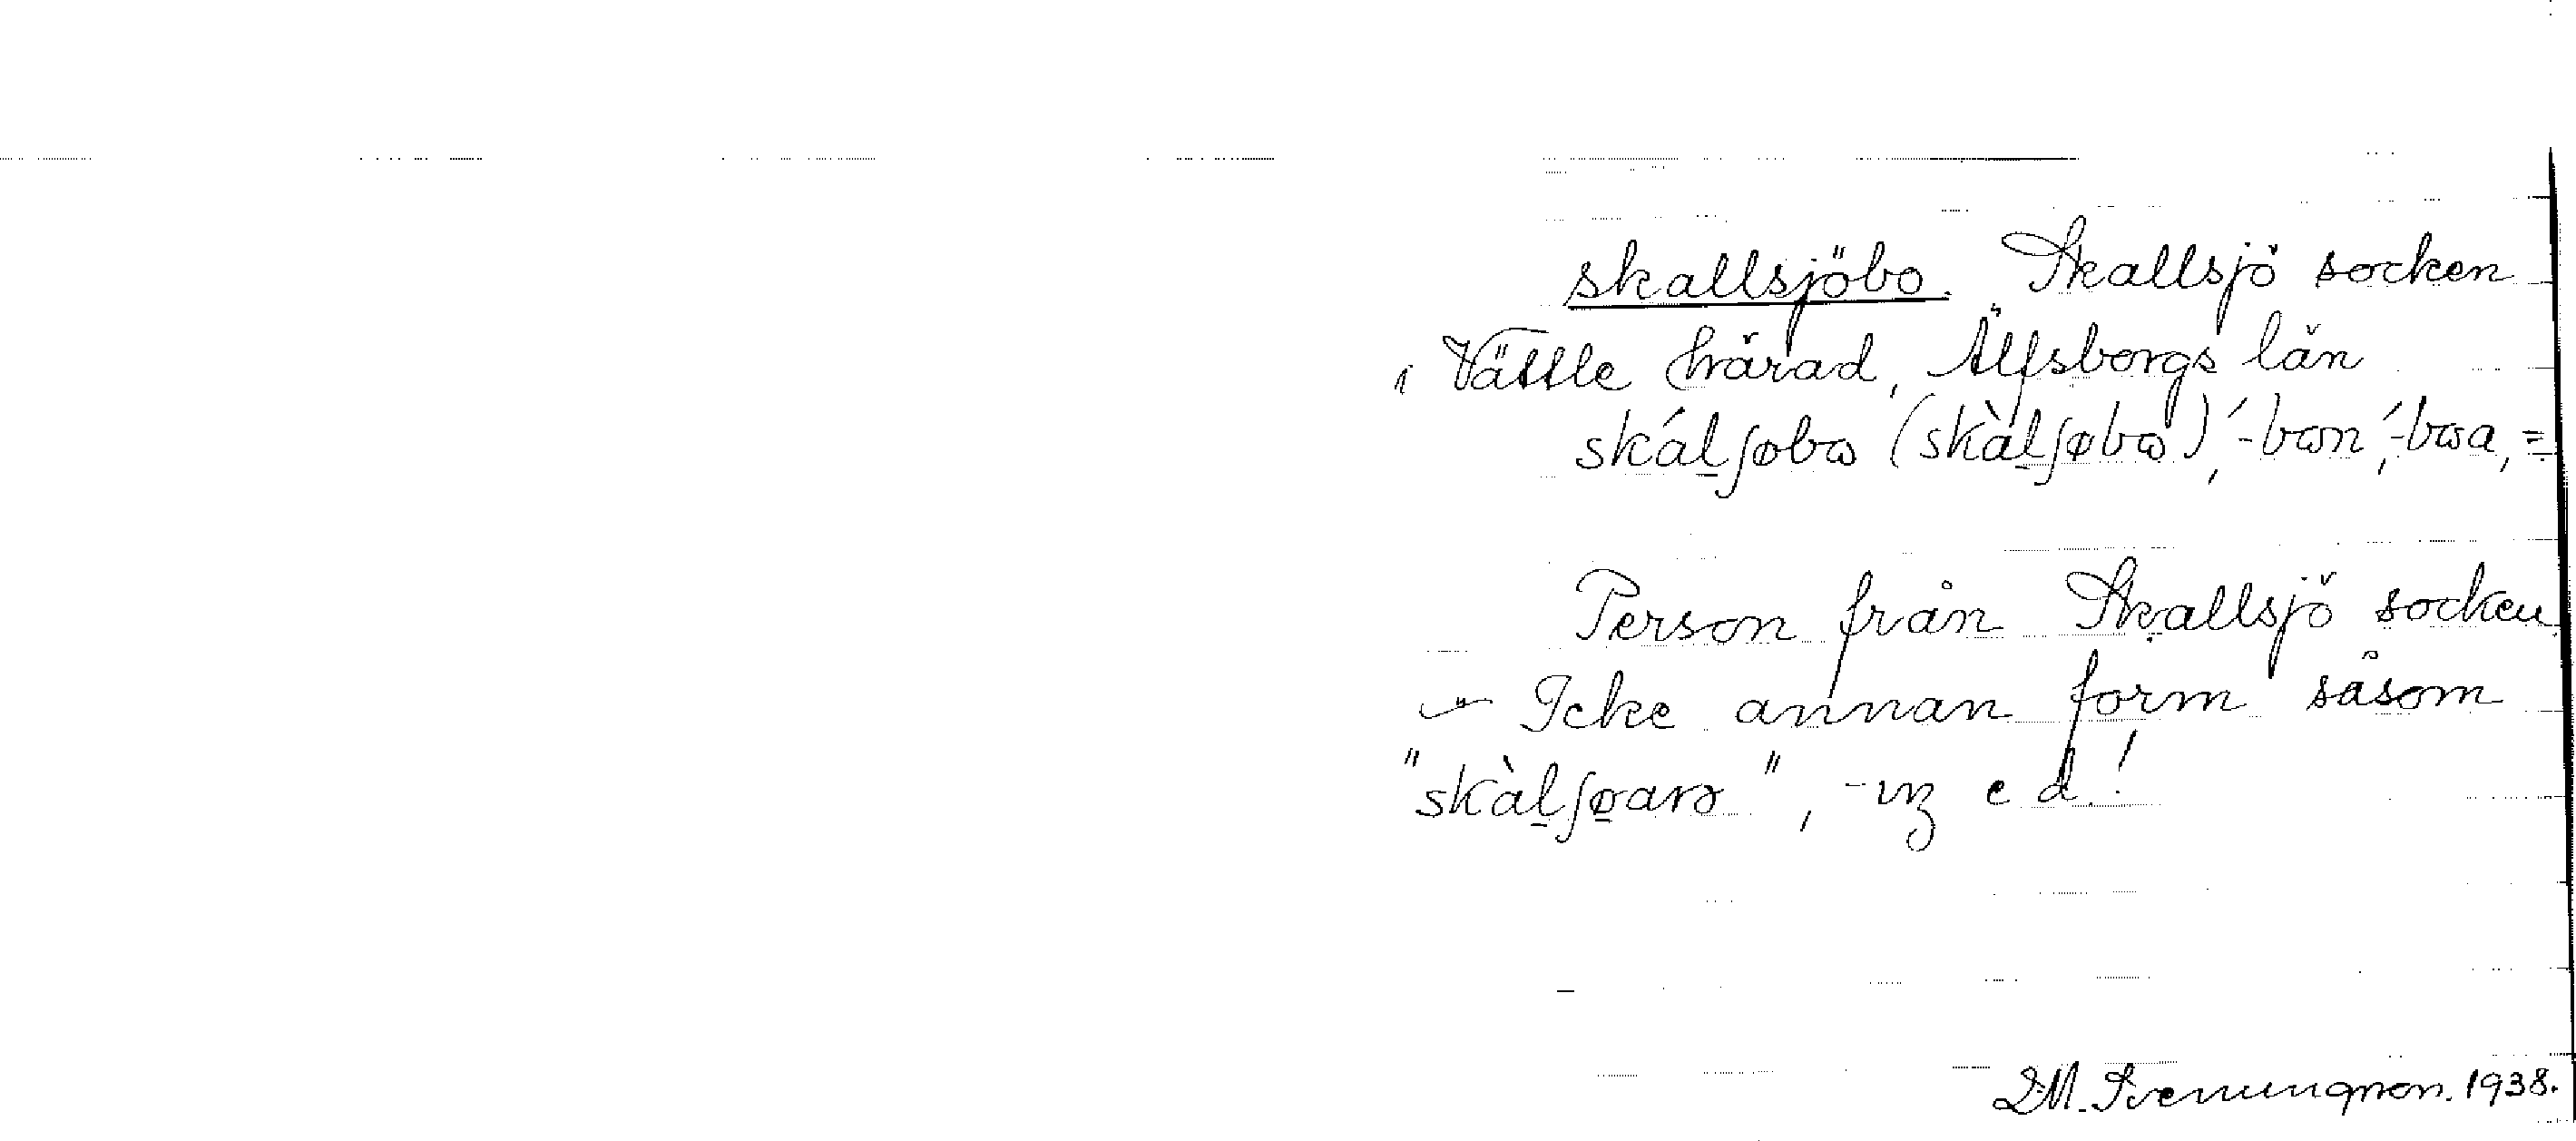 skallsjöbo. Skallsjö socken
i Vättle härad, Älfsborgs län
skál̲ʃøbɷ (skàl̲ʃøbɷ), ´-bɷn, ´-bɷa, =
Person från Skallsjö socken
– Icke annan form såsom
"skàl̲ʃø̲arə", -ɪz e d!
1938.